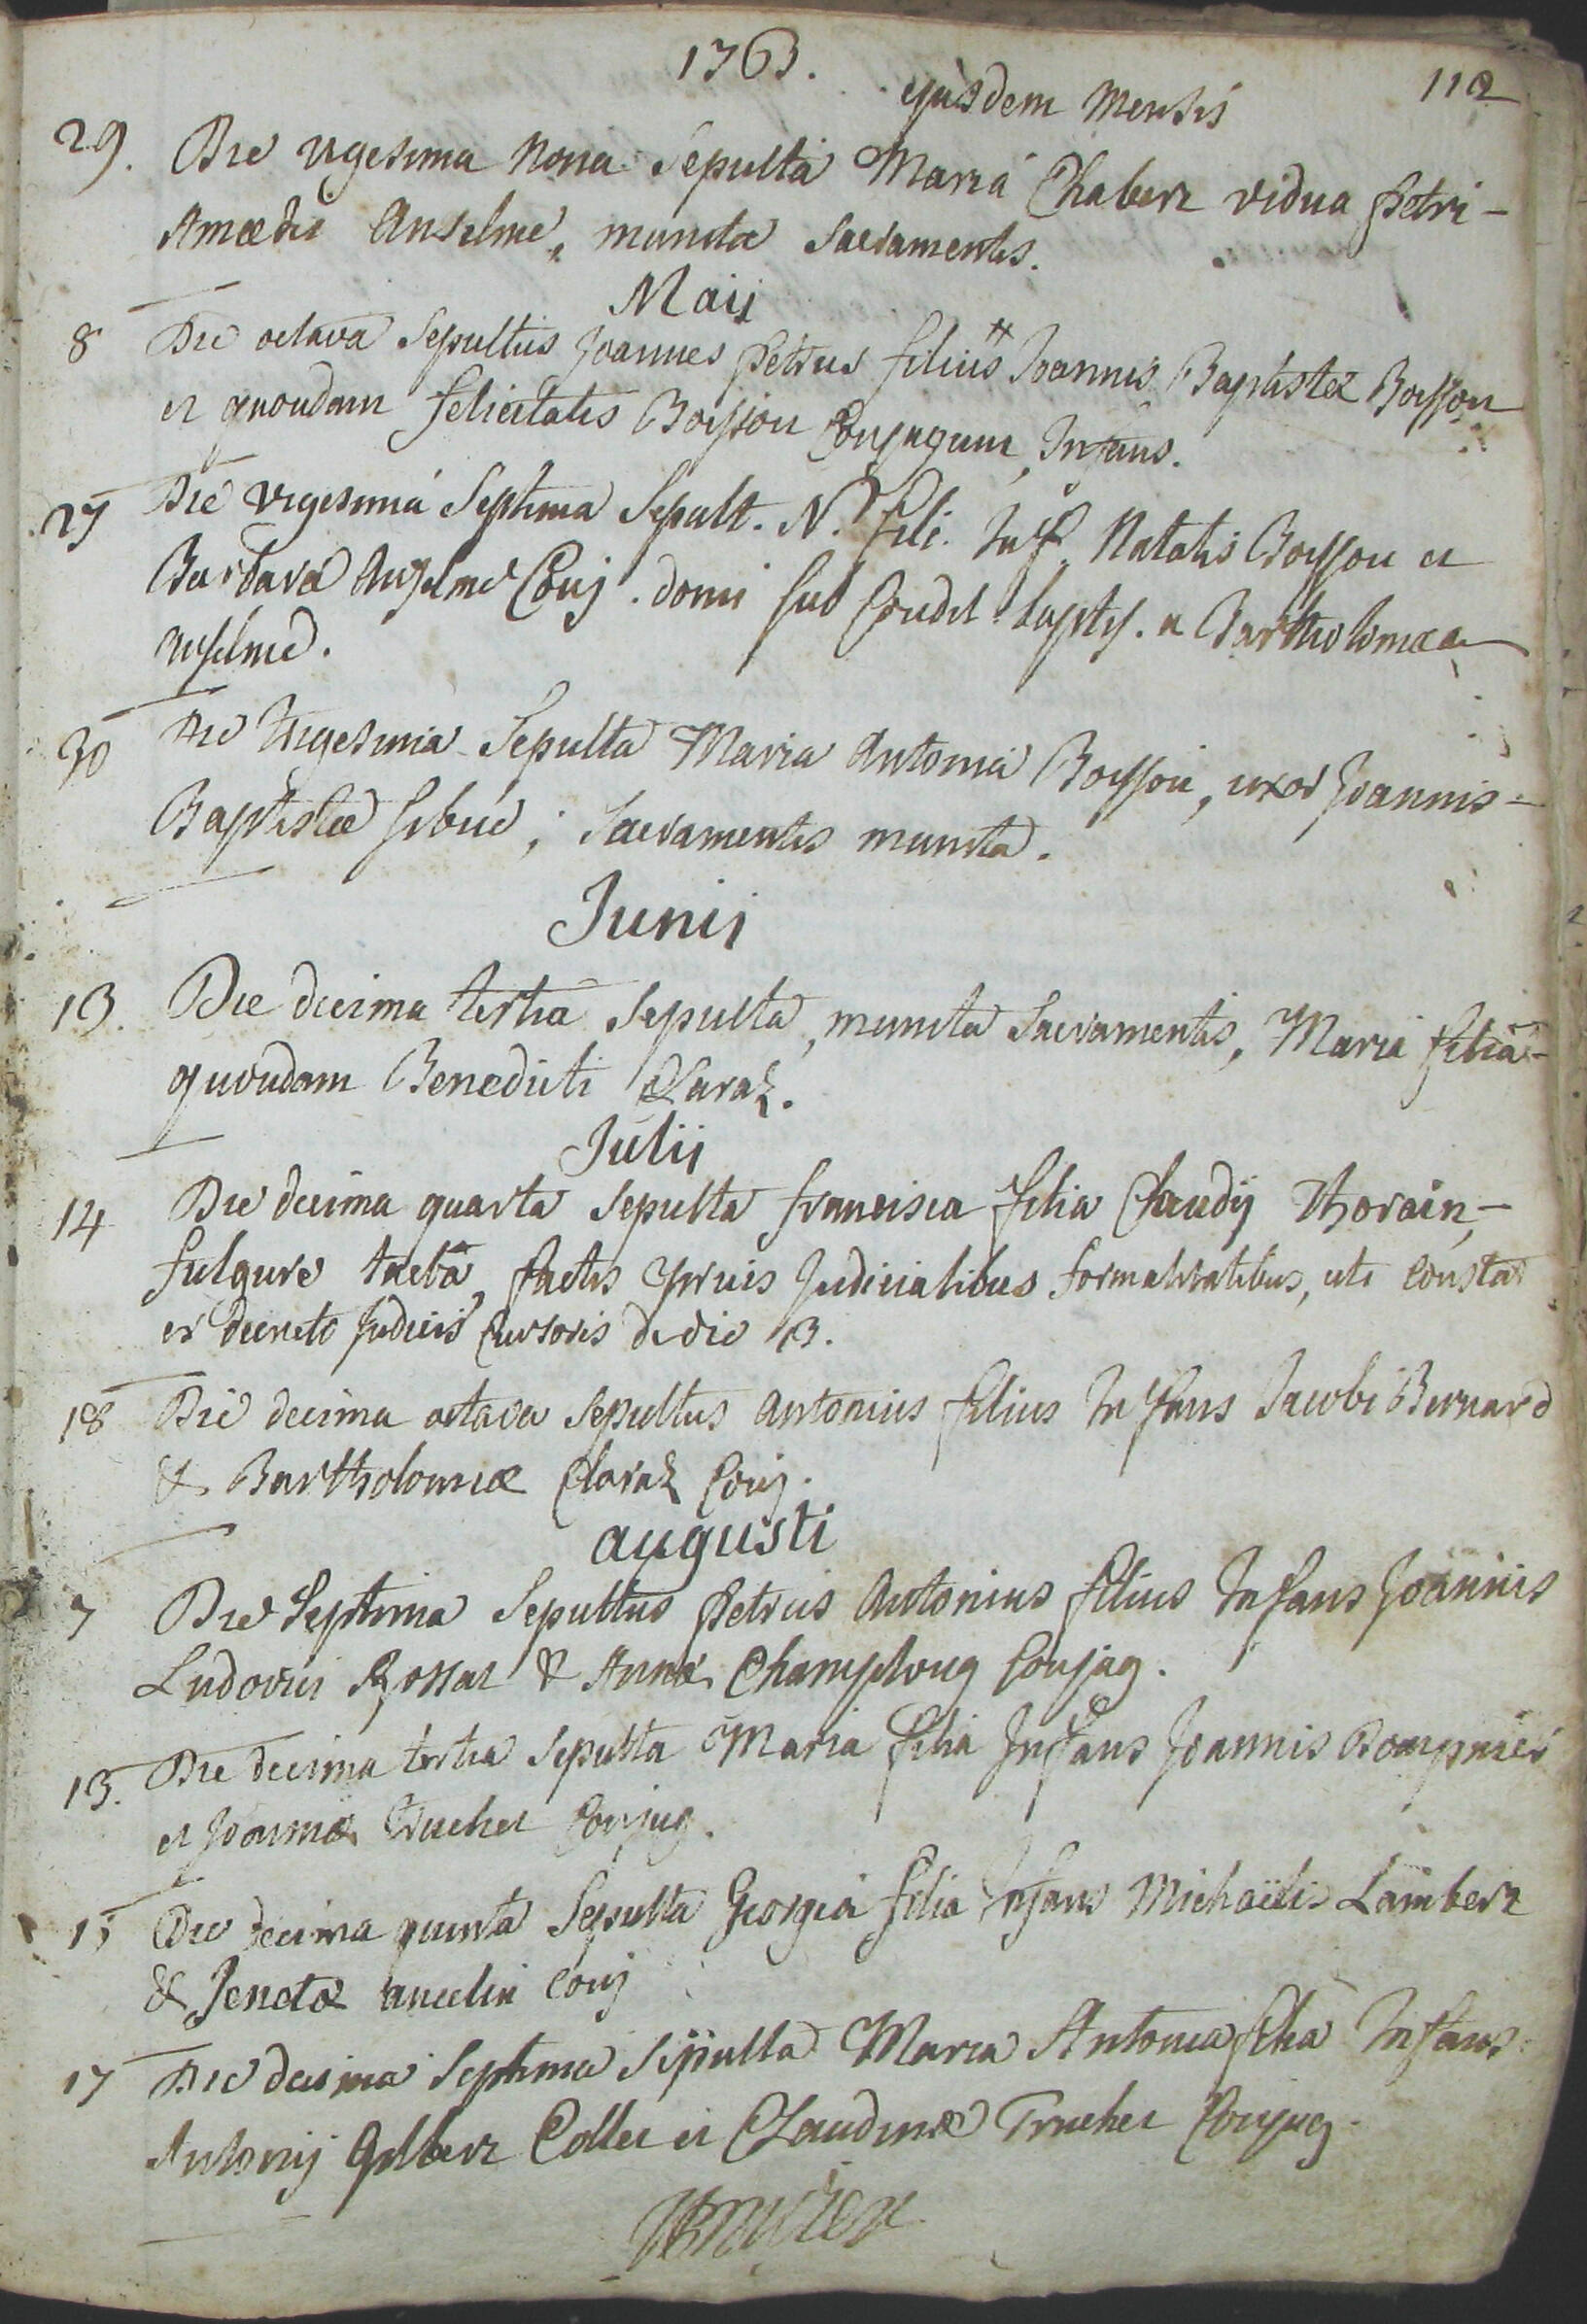 1763.
ejusdem Mensis
112
29. Die vigesima nona Sepulta Maria Chabert vidua Petri-
Amædei Anselme, munita Sacramentis.
Maij
8 Die octava Sepultus Joannes Petrus filius Joannis Baptistæ Boisson
et quondam felicitatis Boisson Conjugum, Infans.
27 Die vigesima Septima Sepult. N. fili. Inf. Natalis Boisson et
Barbaræ Anselme Conj. domi sub Condit. baptis. a Bartholomæa
Anselme.
30 Die trigesima Sepulta Maria Antonia Boisson, uxor Joannis-
Baptistæ Sibue, Sacramentis munita.
Junij
13. Die decima tertia Sepulta, munita Sacramentis, Maria filia-
quondam Benedicti Claraz.
Julij
14 Die decima quarta Sepulta francisca filia Claudij Thorain,-
fulgure tacta, factis prius Judicialibus formalitatibus, uti constat
ex decreto Judicis Cursoris de die 13.
18 Die decima octava Sepultus Antonius filius Infans Jacobi Bernard
& Bartholomeæ Claraz Conj.
augusti
7 Die Septima Sepultus Petrus Antonius filius Infans Joannis
Ludovici Rossat & Annæ Champlong Conjug.
13. Die decima tertia Sepulta Maria filia Infans Joannis
et Joannæ Truchet Conjug.
15 Die decima quinta Sepulta Georgia filia Infans Michaëlis Lambert
& Jenetæ ancelin Conj
17 Die decima Septima Sepulta Maria Antonia filia Infans
Antonij Gilbert Collet et Claudinæ Truchet Conjug.